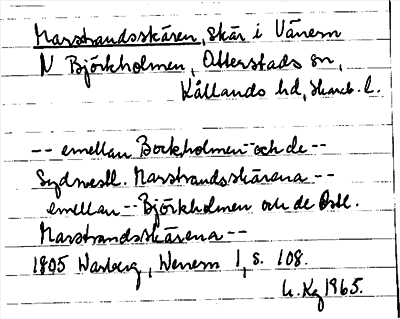 Marstrandsskären, skär i Vänern
N Björkholmen, Otterstads sn,
Kållands hd, Skarab. l.
-- emellan Bockholmen och de --
Sydwestl. Marstrandsskärena --
emellan -- Björkholmen och de Östl.
Marstrandsskärena --
1805 Warberg, Wenern 1, s. 108.
1965.